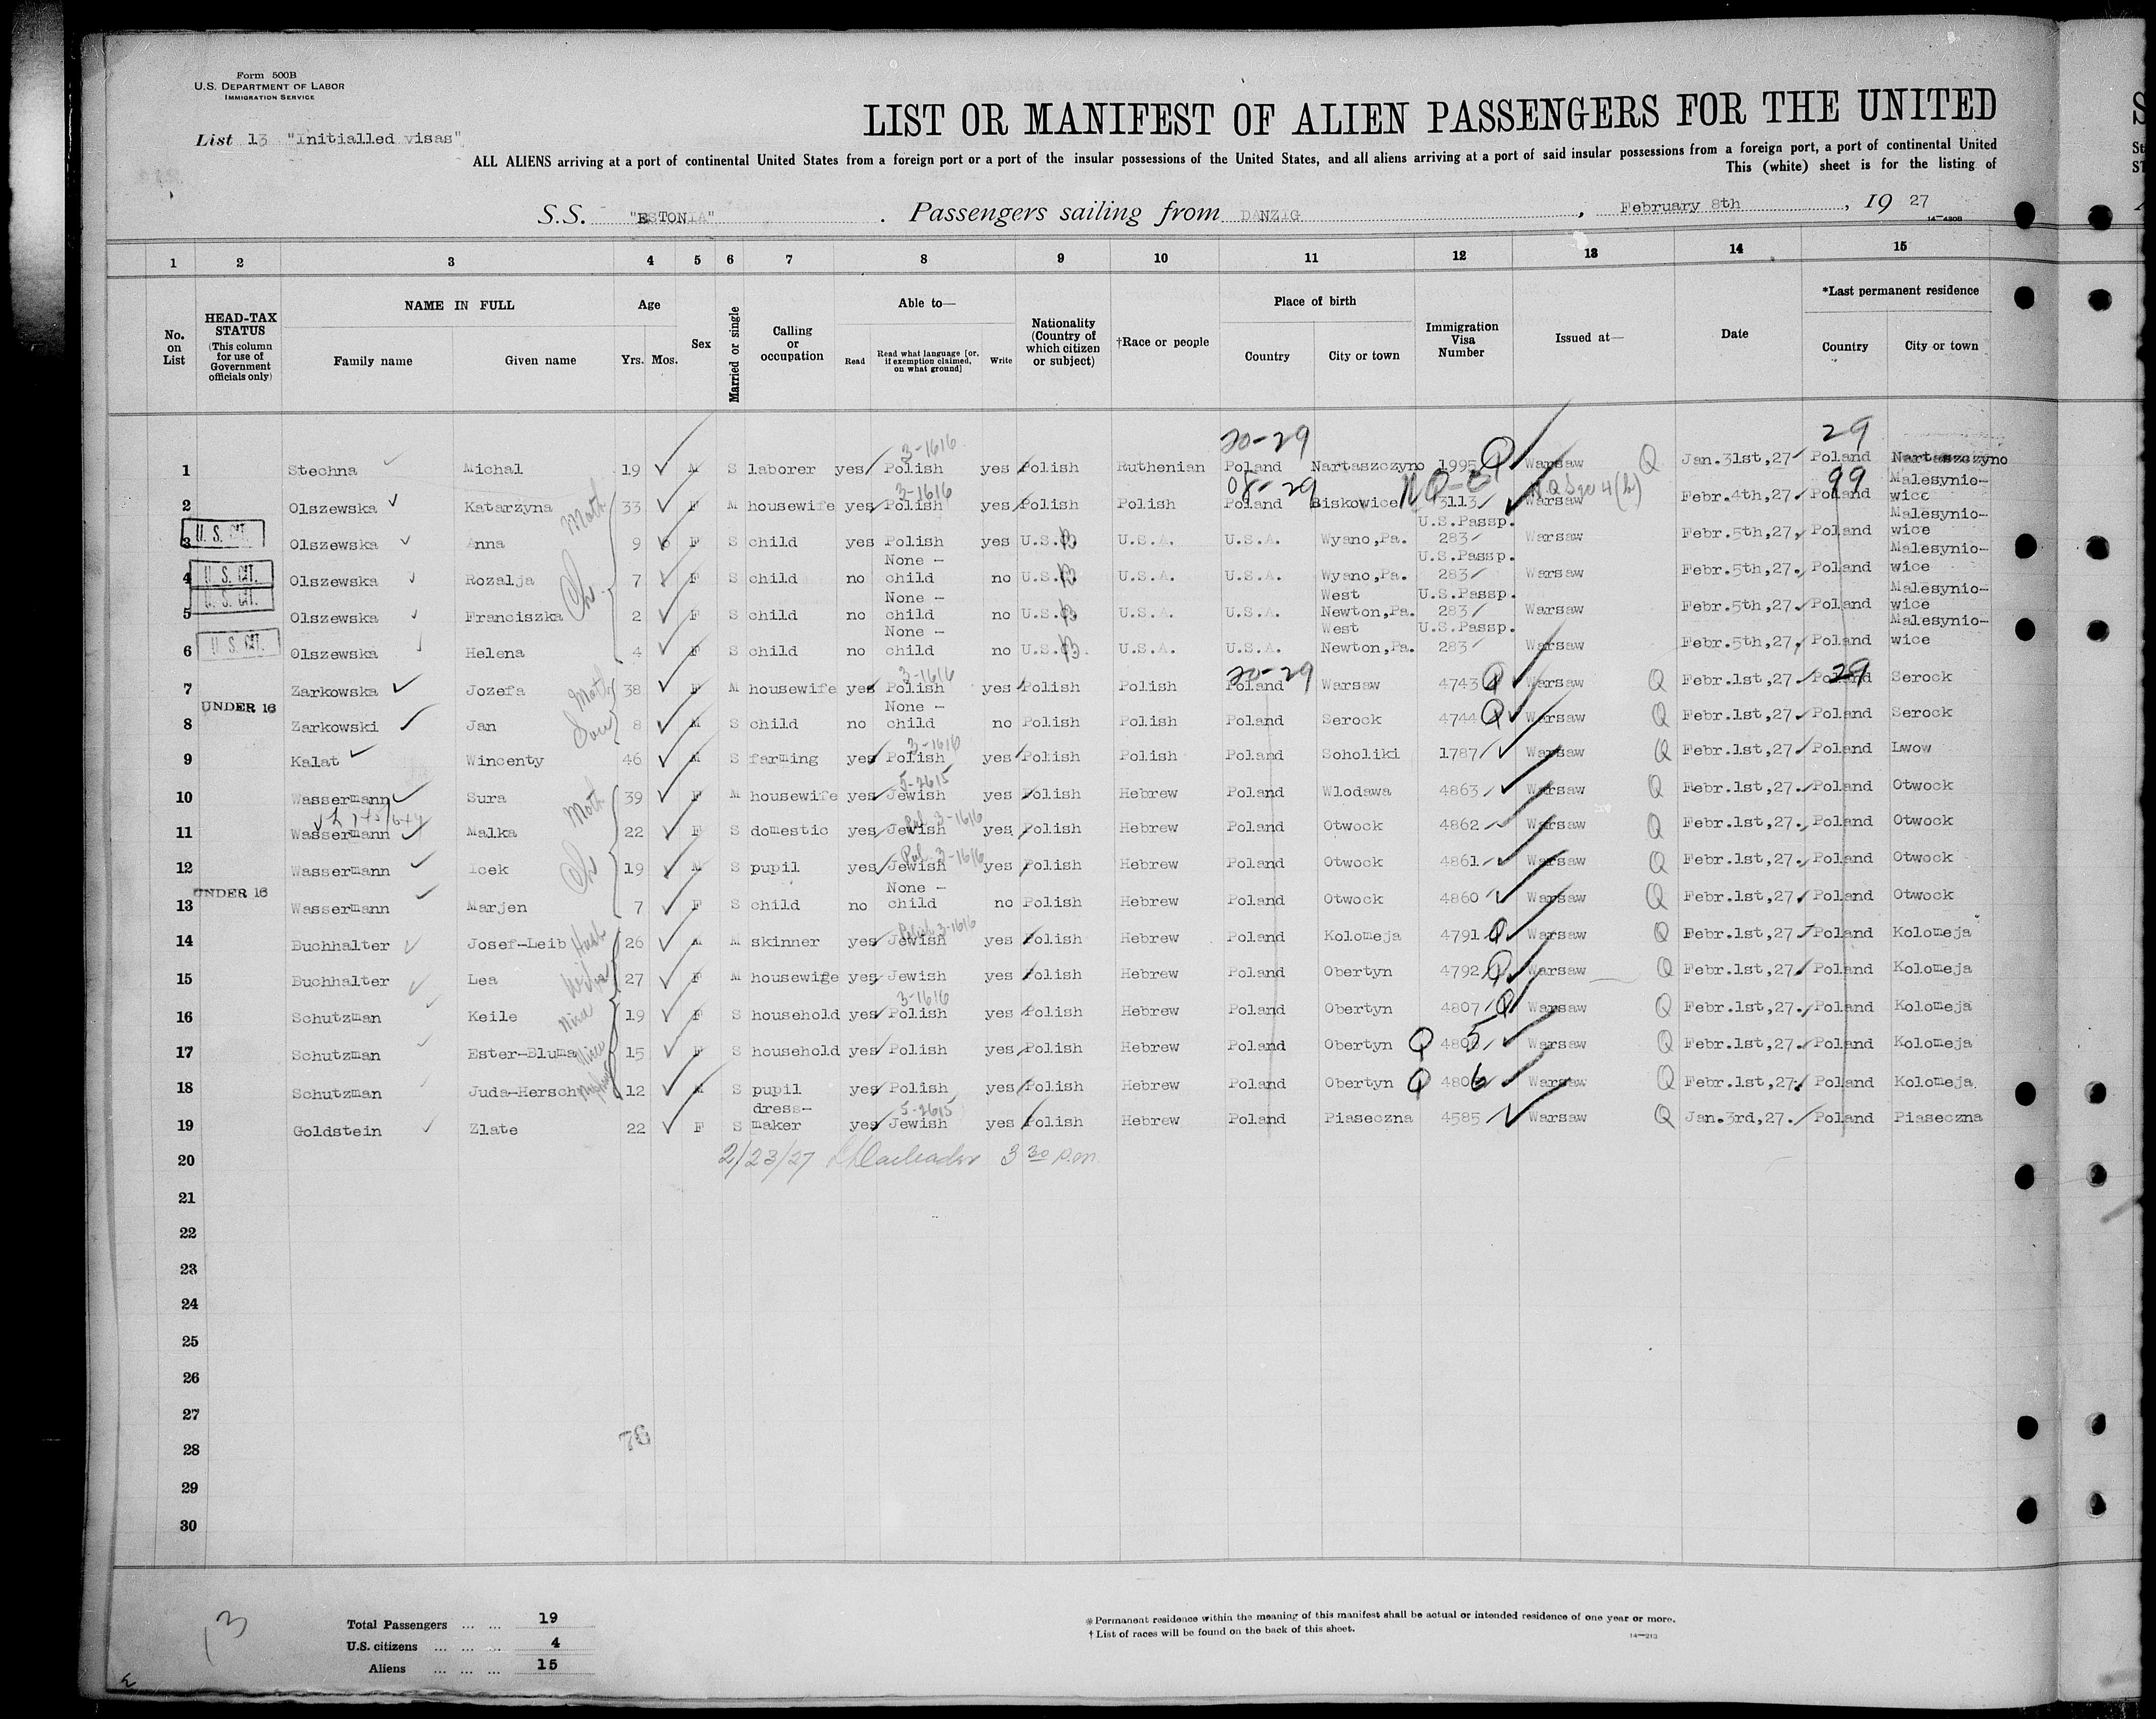 Form 500B
U.S. DEPARTMENT OF LABOR
IMMIGRATION SERVICE
List 13 "Initialled visas"
LIST OR MANIFEST OF ALIEN PASSENGERS FOR THE UNITED
ALL ALIENS arriving at a port of continental United States from a foreign port or a port of the insular possessions of the United States, and all aliens arriving at a port of said insular possessions from a foreign port, a port of continental United
This (white) sheet is for the listing of
S.S. "ESTONIA" . Passengers sailing from DANZIG , February 8th , 19 27
14-430B
1 2 3 4 5 6 7 8 9 10 11 12 13 14 15
No. on List
HEAD-TAX STATUS
(This column for use of Government officials only)
NAME IN FULL
Family name Given name
Age
Yrs. Mos.
Sex
Married or single
Calling or occupation
Able to—
Read Read what language [or, if exemption claimed, on what ground] Write
Nationality (Country of which citizen or subject)
†Race or people
Place of birth
Country City or town
Immigration Visa Number
Issued at—
Date
*Last permanent residence
Country City or town
3-1616 20-29 29
1 Stechna Michal 19 M S laborer yes Polish yes Polish Ruthenian Poland Nartaszczyno 1995 Q Warsaw Q Jan.31st,27 Poland Nartaszczyno
3-1616 08-29 99
2 Olszewska Katarzyna Moth 33 F M housewife yes Polish yes Polish Polish Poland Biskowice 3113 Warsaw Febr.4th,27. Poland Malesynio-wice
U. S. CIT.
3 Olszewska Anna 9 6 F S child yes Polish yes U.S. U.S.A. U.S.A. Wyano,Pa. U.S.Passp. 283 Warsaw Febr.5th,27, Poland Malesynio-wice
U. S. CIT.
4 Olszewska Rozalja Ch 7 F S child no None - child no U.S. U.S.A. U.S.A. Wyano,Pa. U.S.Passp. 283 Warsaw Febr.5th,27. Poland Malesynio-wice
U. S. CIT.
5 Olszewska Franciszka 2 F S child no None - child no U.S. U.S.A. U.S.A. West Newton,Pa. U.S.Passp. 283 Warsaw Febr.5th,27. Poland Malesynio-wice
U. S. CIT.
6 Olszewska Helena 4 F S child no None - child no U.S. U.S.A. U.S.A. West Newton,Pa. U.S.Passp. 283 Warsaw Febr.5th,27, Poland Malesynio-wice
3-1616 20-29 29
7 Zarkowska Jozefa Moth 38 F M housewife yes Polish yes Polish Polish Poland Warsaw 4743 Q Warsaw Q Febr.1st,27. Poland Serock
UNDER 16
8 Zarkowski Jan Son 8 M S child no None - child no Polish Polish Poland Serock 4744 Q Warsaw Q Febr.1st,27. Poland Serock
3-1616
9 Kalat Wincenty 46 M S farming yes Polish yes Polish Polish Poland Soholiki 1787 Warsaw Q Febr.1st,27. Poland Lwow
5-2615
10 Wassermann Sura Moth 39 F M housewife yes Jewish yes Polish Hebrew Poland Wlodawa 4863 Warsaw Q Febr.1st,27. Poland Otwock
Pol. 3-1616
11 Wassermann Malka 22 F S domestic yes Jewish yes Polish Hebrew Poland Otwock 4862 Warsaw Q Febr.1st,27. Poland Otwock
Pol. 3-1616
12 Wassermann Icek Ch 19 M S pupil yes Jewish yes Polish Hebrew Poland Otwock 4861 Warsaw Q Febr.1st,27. Poland Otwock
UNDER 16
13 Wassermann Marjen 7 F S child no None - child no Polish Hebrew Poland Otwock 4860 Warsaw Q Febr.1st,27. Poland Otwock
Polish 3-1616
14 Buchhalter Josef-Leib Husb 26 M M skinner yes Jewish yes Polish Hebrew Poland Kolomeja 4791 Q Warsaw Q Febr.1st,27. Poland Kolomeja
15 Buchhalter Lea Wife 27 F M housewife yes Jewish yes Polish Hebrew Poland Obertyn 4792 Q Warsaw Q Febr.1st,27. Poland Kolomeja
3-1616
16 Schutzman Keile Niece 19 F S household yes Polish yes Polish Hebrew Poland Obertyn 4807 Q Warsaw Q Febr.1st,27. Poland Kolomeja
17 Schutzman Ester-Bluma Niece 15 F S household yes Polish yes Polish Hebrew Poland Obertyn Q 4805 Warsaw Q Febr.1st,27. Poland Kolomeja
18 Schutzman Juda-Hersch 12 M S pupil yes Polish yes Polish Hebrew Poland Obertyn Q 4806 Warsaw Q Febr.1st,27. Poland Kolomeja
5-2615
19 Goldstein Zlate 22 F S dress-maker yes Jewish yes Polish Hebrew Poland Piaseczna 4585 Warsaw Q Jan.3rd,27. Poland Piaseczna
20 2/23/27 3 30 p.m.
21
22
23
24
25
26
27
28
29
30
Total Passengers ... ... 19
U.S. citizens ... ... ... 4
Aliens ... ... ... 15
*Permanent residence within the meaning of this manifest shall be actual or intended residence of one year or more.
† List of races will be found on the back of this sheet.
14-213